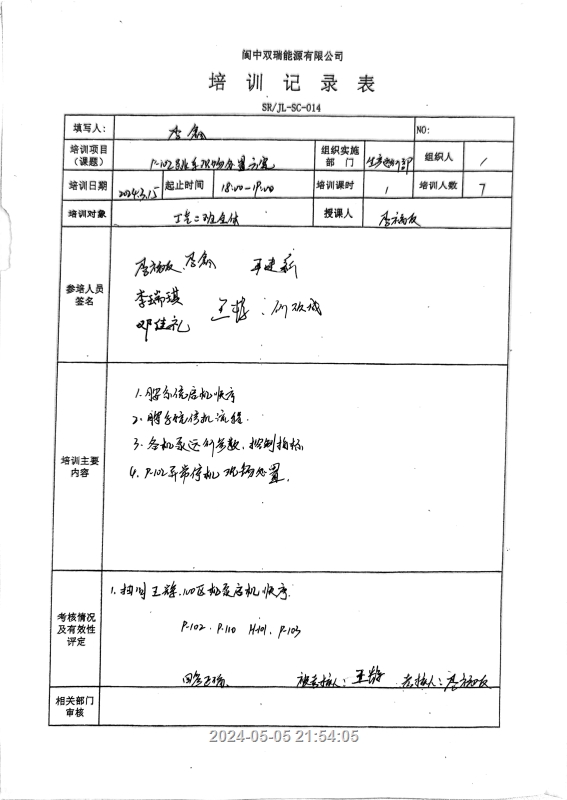 阆中双瑞能源有限公司
培训记录表
SR/JL-SC-014
填写人: NO:
培训项目（课题） P-102 现场处置方案 组织实施部门 生产 部 组织人 /
培训日期 2024.3.15 起止时间 18:00-19:00 培训课时 1 培训人数 7
培训对象 二班全体 授课人
参培人员签名
李瑞琪
邓佳礼
培训主要内容
1. 脱 系统启机顺序
2. 脱 系统停机流程.
3. 各机泵运行参数, 控制指标
4. P-102异常停机 现场处置.
考核情况及有效性评定
1. 抽问王 .100区机泵启机顺序.
P-102. P-110 H-101. P-103
回答正确. 被考核人: 王 考核人:
相关部门审核
2024-05-05 21:54:05